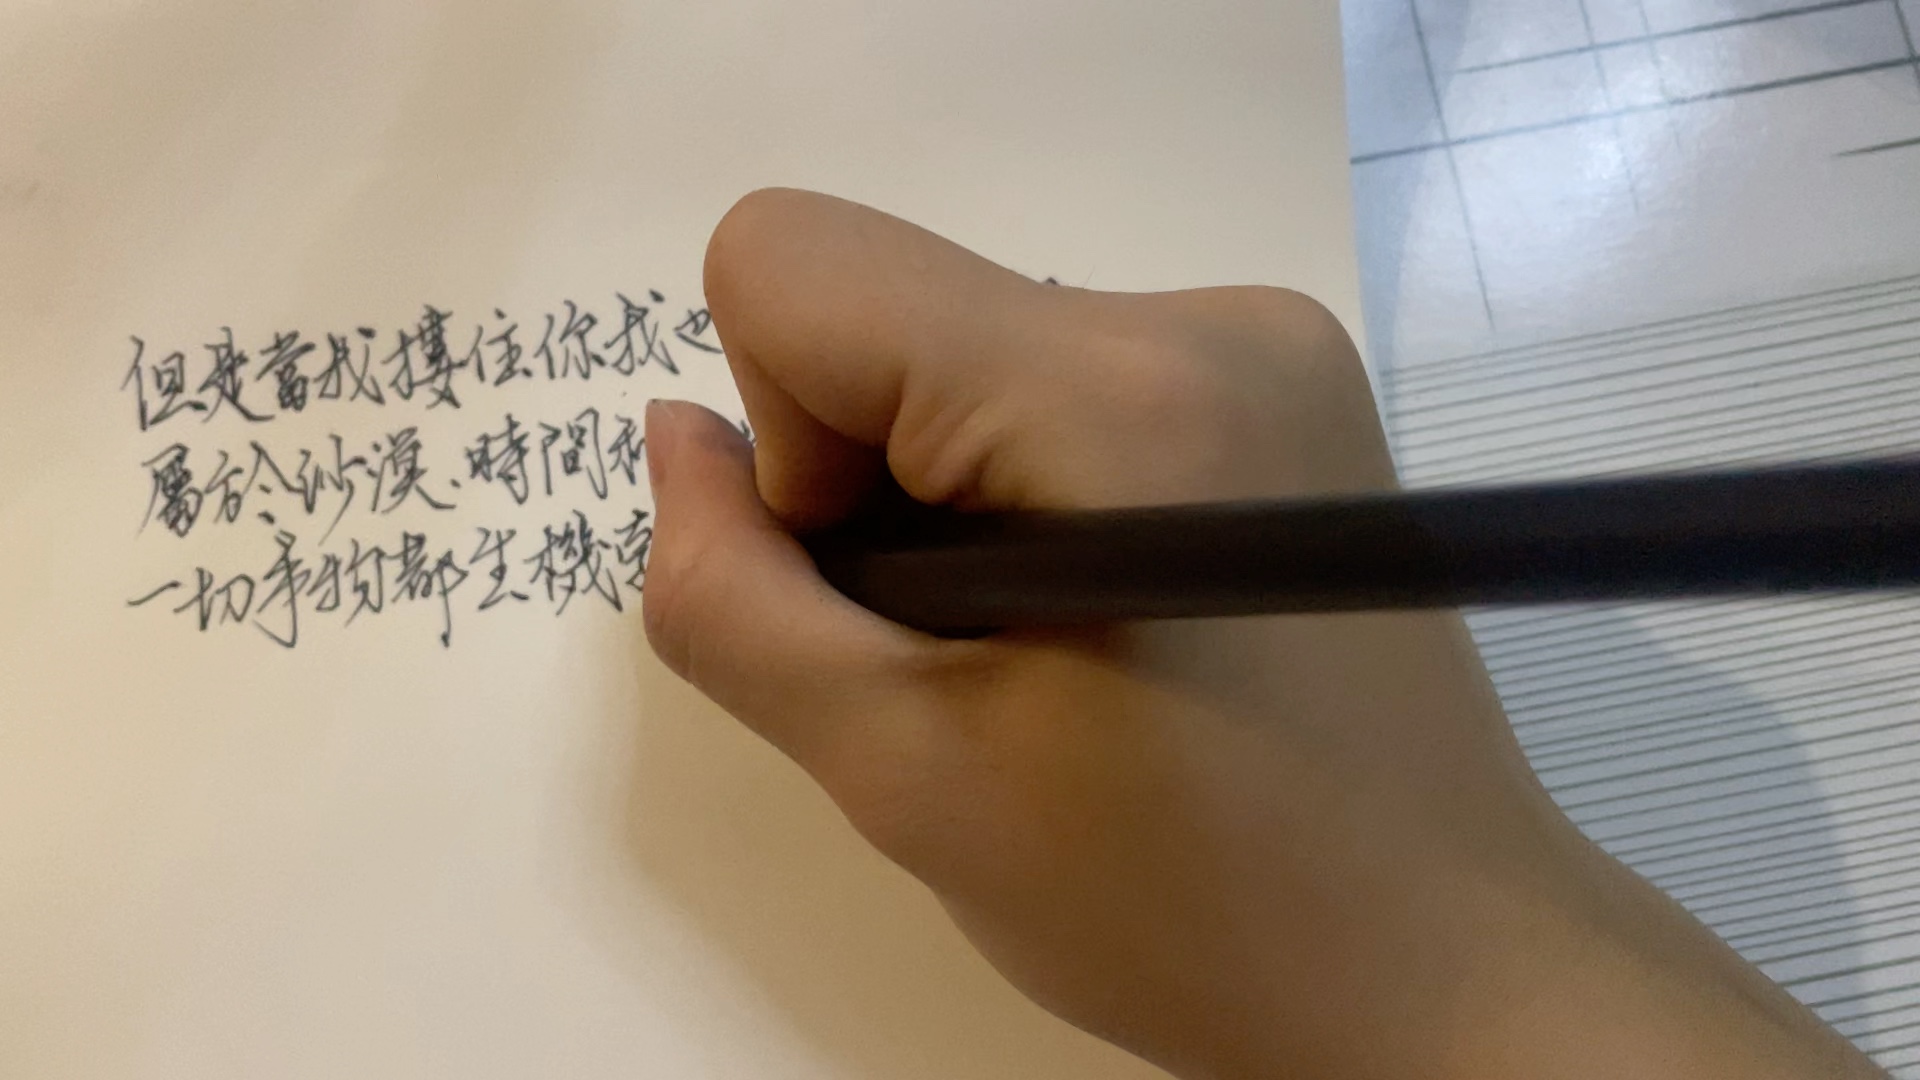 但是當我摟住你我也
屬於沙漠、時間和
一切事物都生機